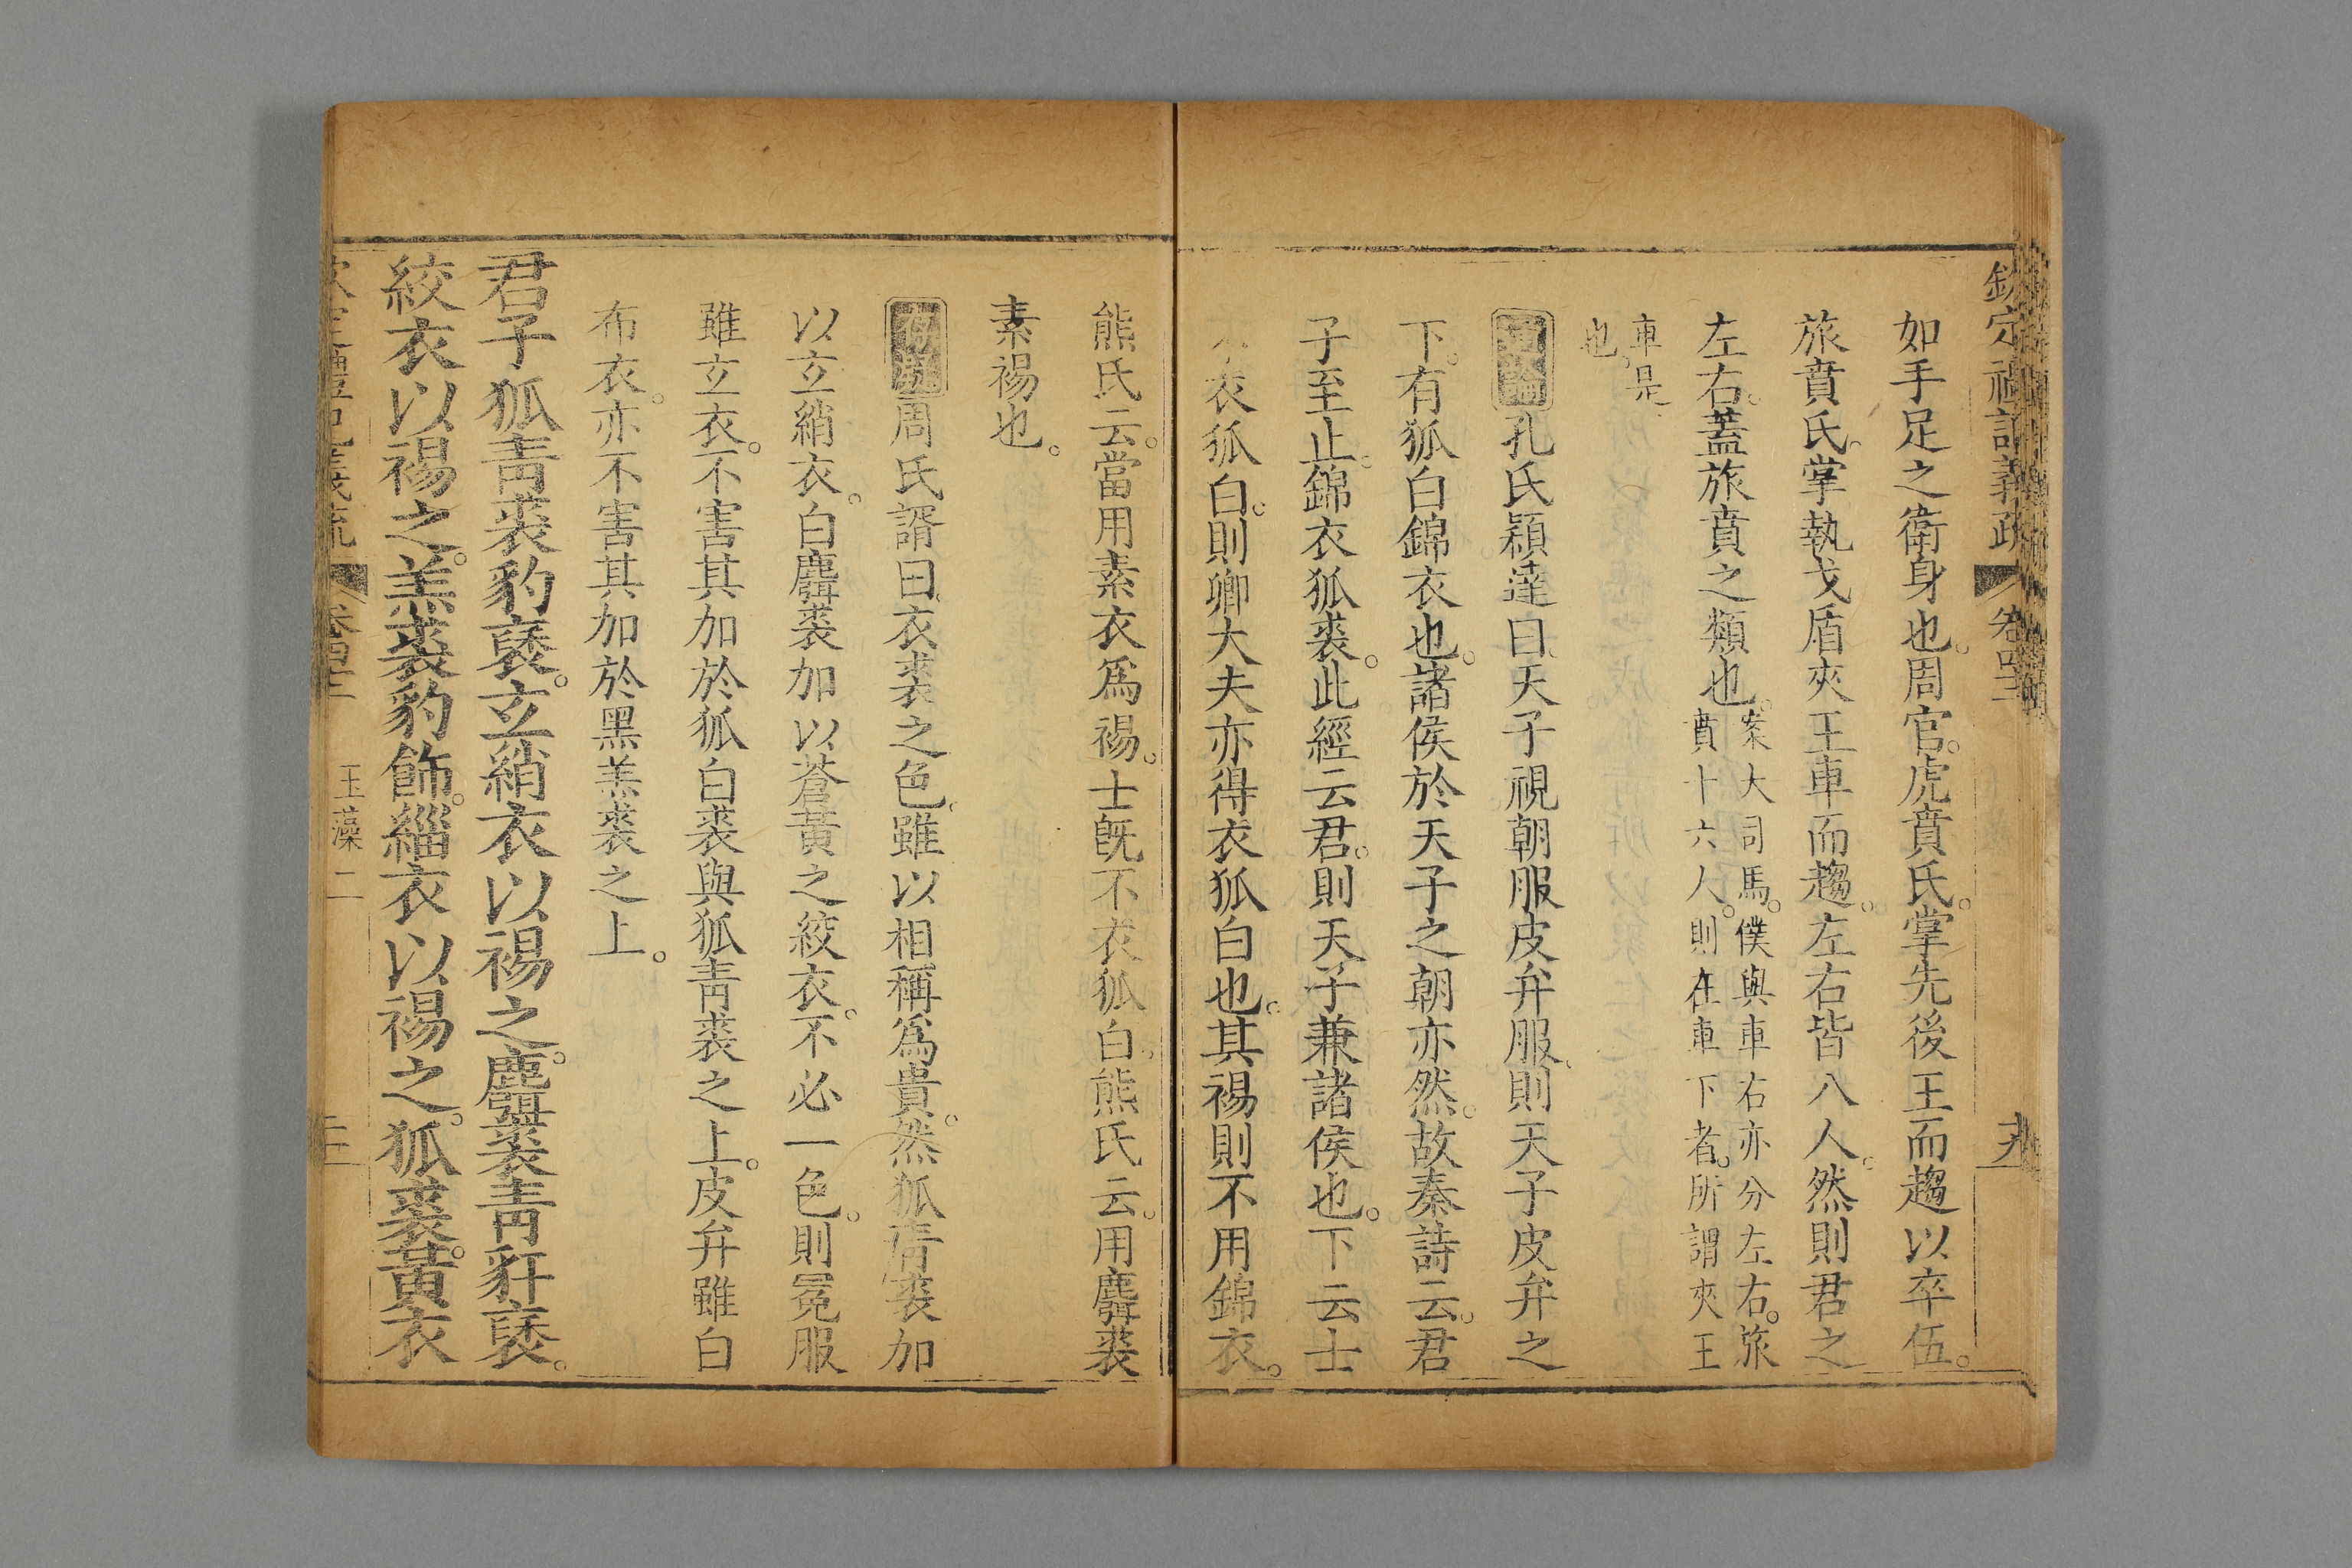 欽定禮記義疏 卷四十 九
如手足之衛身也。周官。虎賁氏。掌先後王而趨以卒伍。
旅賁氏。掌執戈盾夾王車而趨。左右皆八人。然則君之
左右。蓋旅賁之類也。案大司馬。僕與車右亦分左右。旅
賁十六人。則在車下者。所謂夾王
車是
也。
孔氏穎達曰。天子視朝服皮弁服。則天子皮弁之
下。有狐白錦衣也。諸侯於天子之朝亦然。故秦詩云。君
子至止。錦衣狐裘。此經云君。則天子兼諸侯也。下云士
衣狐白。則卿大夫亦得衣狐白也。其裼則不用錦衣。
熊氏云。當用素衣爲裼。士既不衣狐白。熊氏云。用麛裘
素裼也。
周氏諝曰。衣裘之色。雖以相稱爲貴。然狐靑裘加
以玄綃衣。白麛裘加以蒼黃之絞衣。不必一色。則冕服
雖玄衣。不害其加於狐白裘與狐靑裘之上。皮弁雖白
布衣。亦不害其加於黑羔裘之上。
君子狐靑裘豹褎。玄綃衣以裼之。麛裘靑豻褎。
絞衣以裼之。羔裘豹飾。緇衣以裼之。狐裘。黃衣
玉藻二